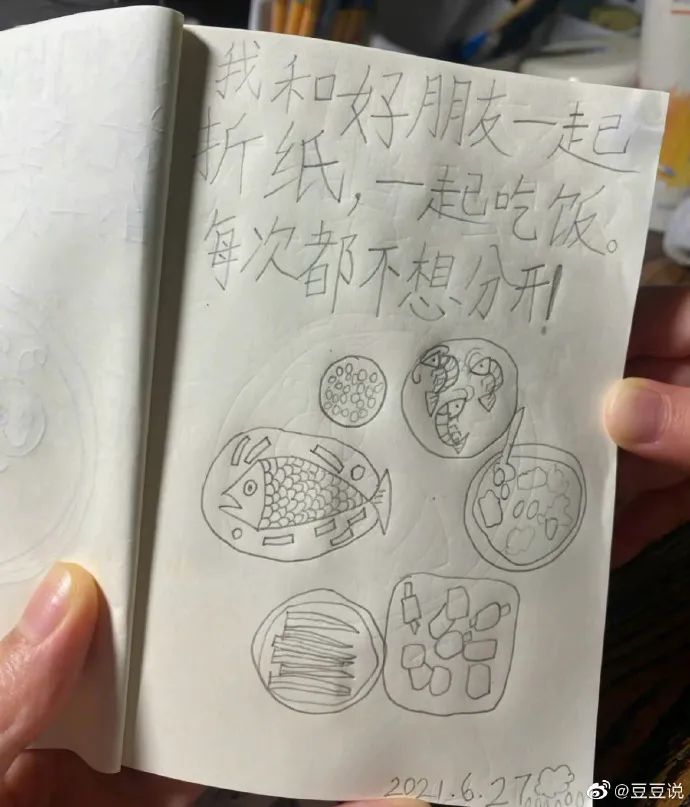 我和好朋友一起
折纸,一起吃饭。
每次都不想分开!
2021.6.27
@豆豆说